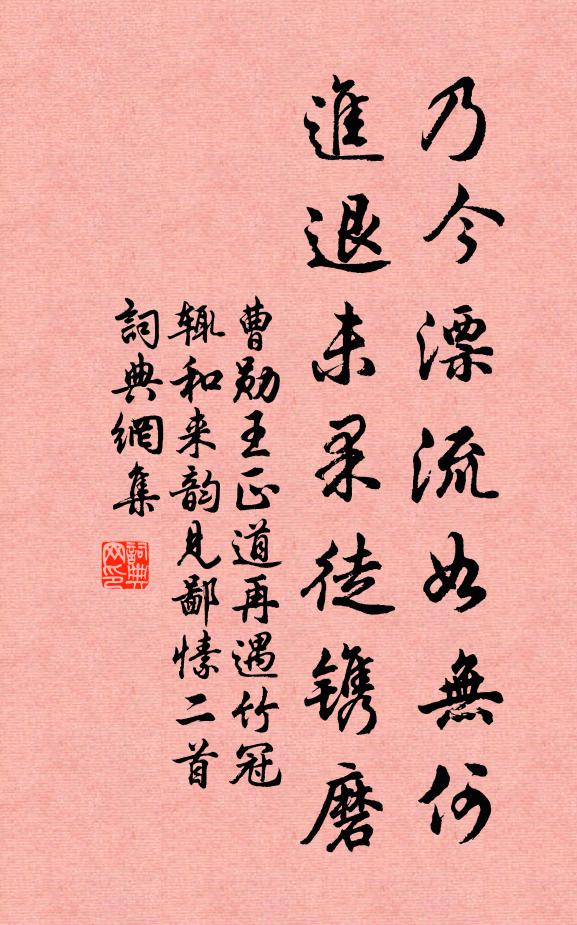 乃今漂流如無何
進退未果徒鐫磨
曹勋王正道再遇竹冠
辄和来韵见鄙愫二首
詞典網集
詞典网印